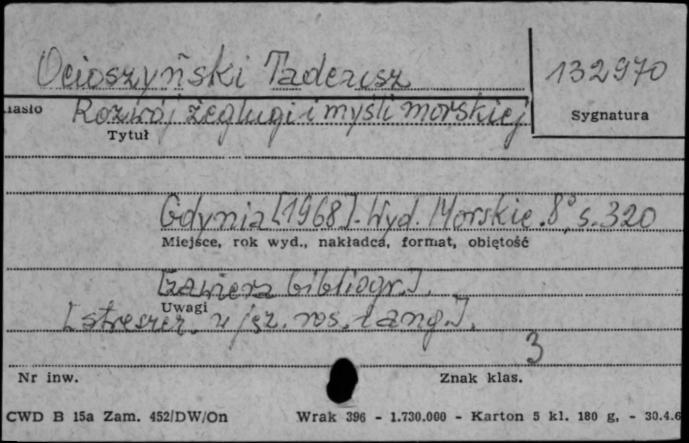 Ocioszyński Tadeusz
132970
iasło
Rozwój żeglugi i myśli morskiej
Sygnatura
Tytuł
Gdynia [1968]. Wyd. Morskie. 8°, s. 320
Miejsce, rok wyd., nakładca, format, obiętość
[zawiera bibliogr.].
Uwagi
[streszcz. w jęz. ros. i ang.].
3
Nr inw.
Znak klas.
CWD B 15a Zam. 452/DW/On
Wrak 396 - 1.730.000 - Karton 5 kl. 180 g, - 30.4.6